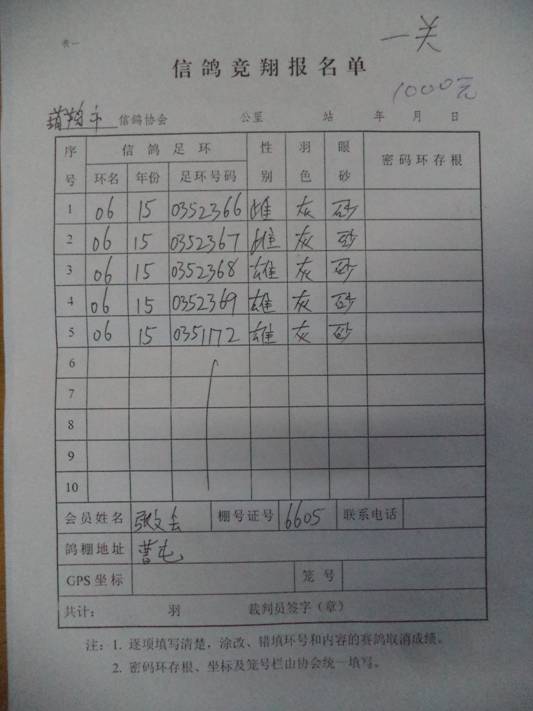 表一
一关
信鸽竞翔报名单
1000元
信鸽协会 公里 站 年 月 日
序号 信鸽足环 性别 羽色 眼砂 密码环存根
环名 年份 足环号码
1 06 15 0352366 雄 灰 砂
2 06 15 0352367 雄 灰 砂
3 06 15 0352368 雄 灰 砂
4 06 15 0352369 雄 灰 砂
5 06 15 0351172 雄 灰 砂
6
7
8
9
10
会员姓名 张文会 棚号证号 6605 联系电话
鸽棚地址 营屯
GPS坐标 笼号
共计: 羽 裁判员签字(章)
注: 1. 逐项填写清楚,涂改、错填环号和内容的赛鸽取消成绩。
2. 密码环存根、坐标及笼号栏由协会统一填写。